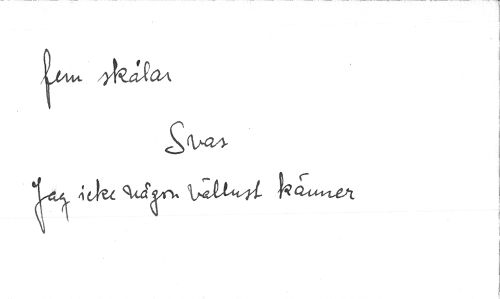 fem skålar
Svas
Jag icke någon vällust känner